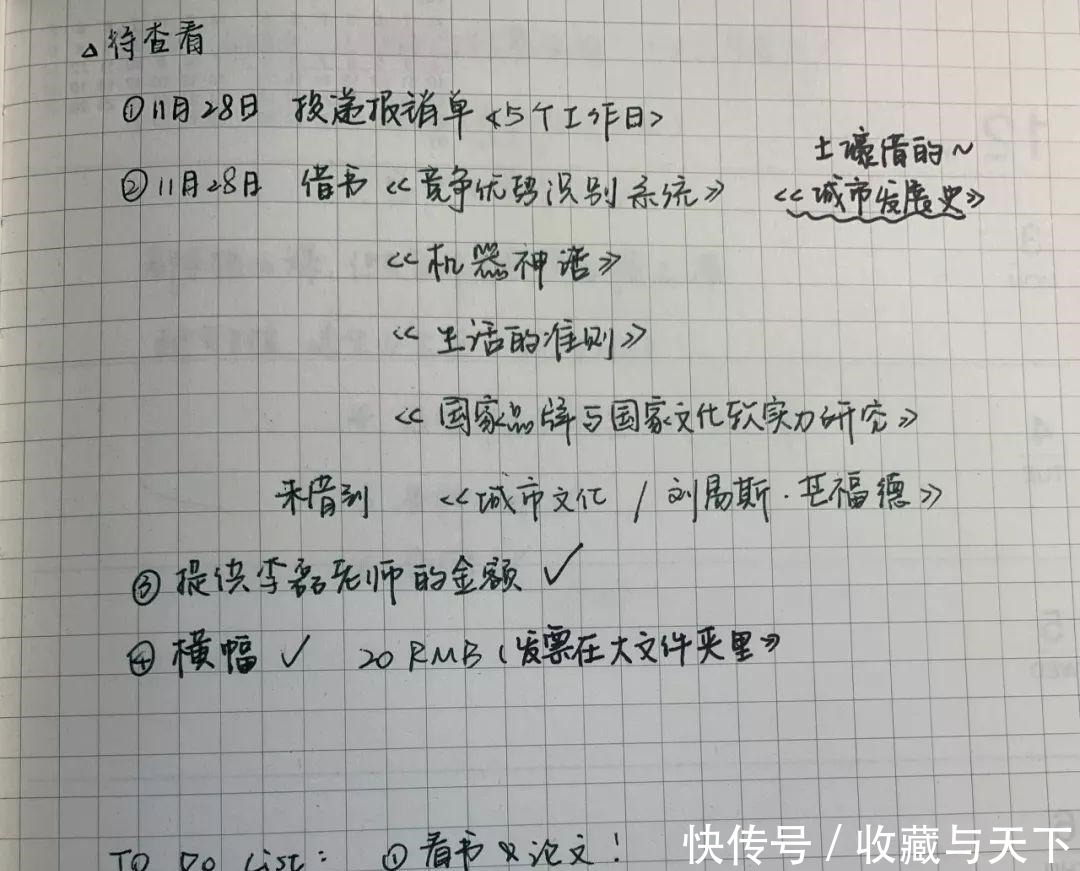 △待查看
①11月28日 投递报销单<5个工作日>
土壕借的~
②11月28日 借书《竞争优势识别系统》
《城市发展史》
《机器神话》
《生活的准则》
《国家品牌与国家文化软实力研究》
未借到 《城市文化 / 刘易斯·芒福德》
③提供李磊老师的金额 ✓
④横幅 ✓ 20 RMB (发票在大文件夹里》
TO DO List: ①看书&论文!
快传号 / 收藏与天下